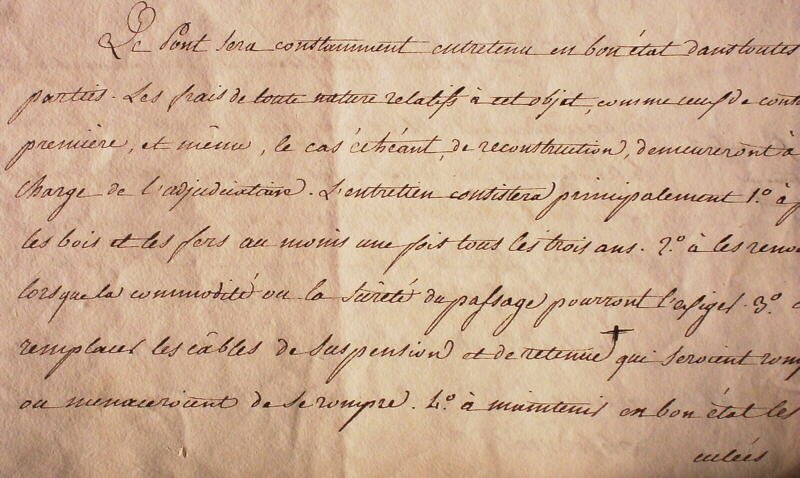 Le Pont sera constamment entretenu en bon état dans toutes
parties. Les frais de toute nature relatifs à cet objet, comme ceux de cont
première, et même, le cas échéant, de reconstruction, demeureront à
charge de l'adjudicataire. L'entretien consistera principalement 1.º à p
les bois et les fers au moins une fois tous les trois ans. 2.º à les renou
lorsque la commodité ou la sûreté du passage pourront l'exiger. 3.º
remplacer les câbles de suspension et de retenue qui seroient romp
ou menaceroient de se rompre. 4.º à maintenir en bon état les
culées